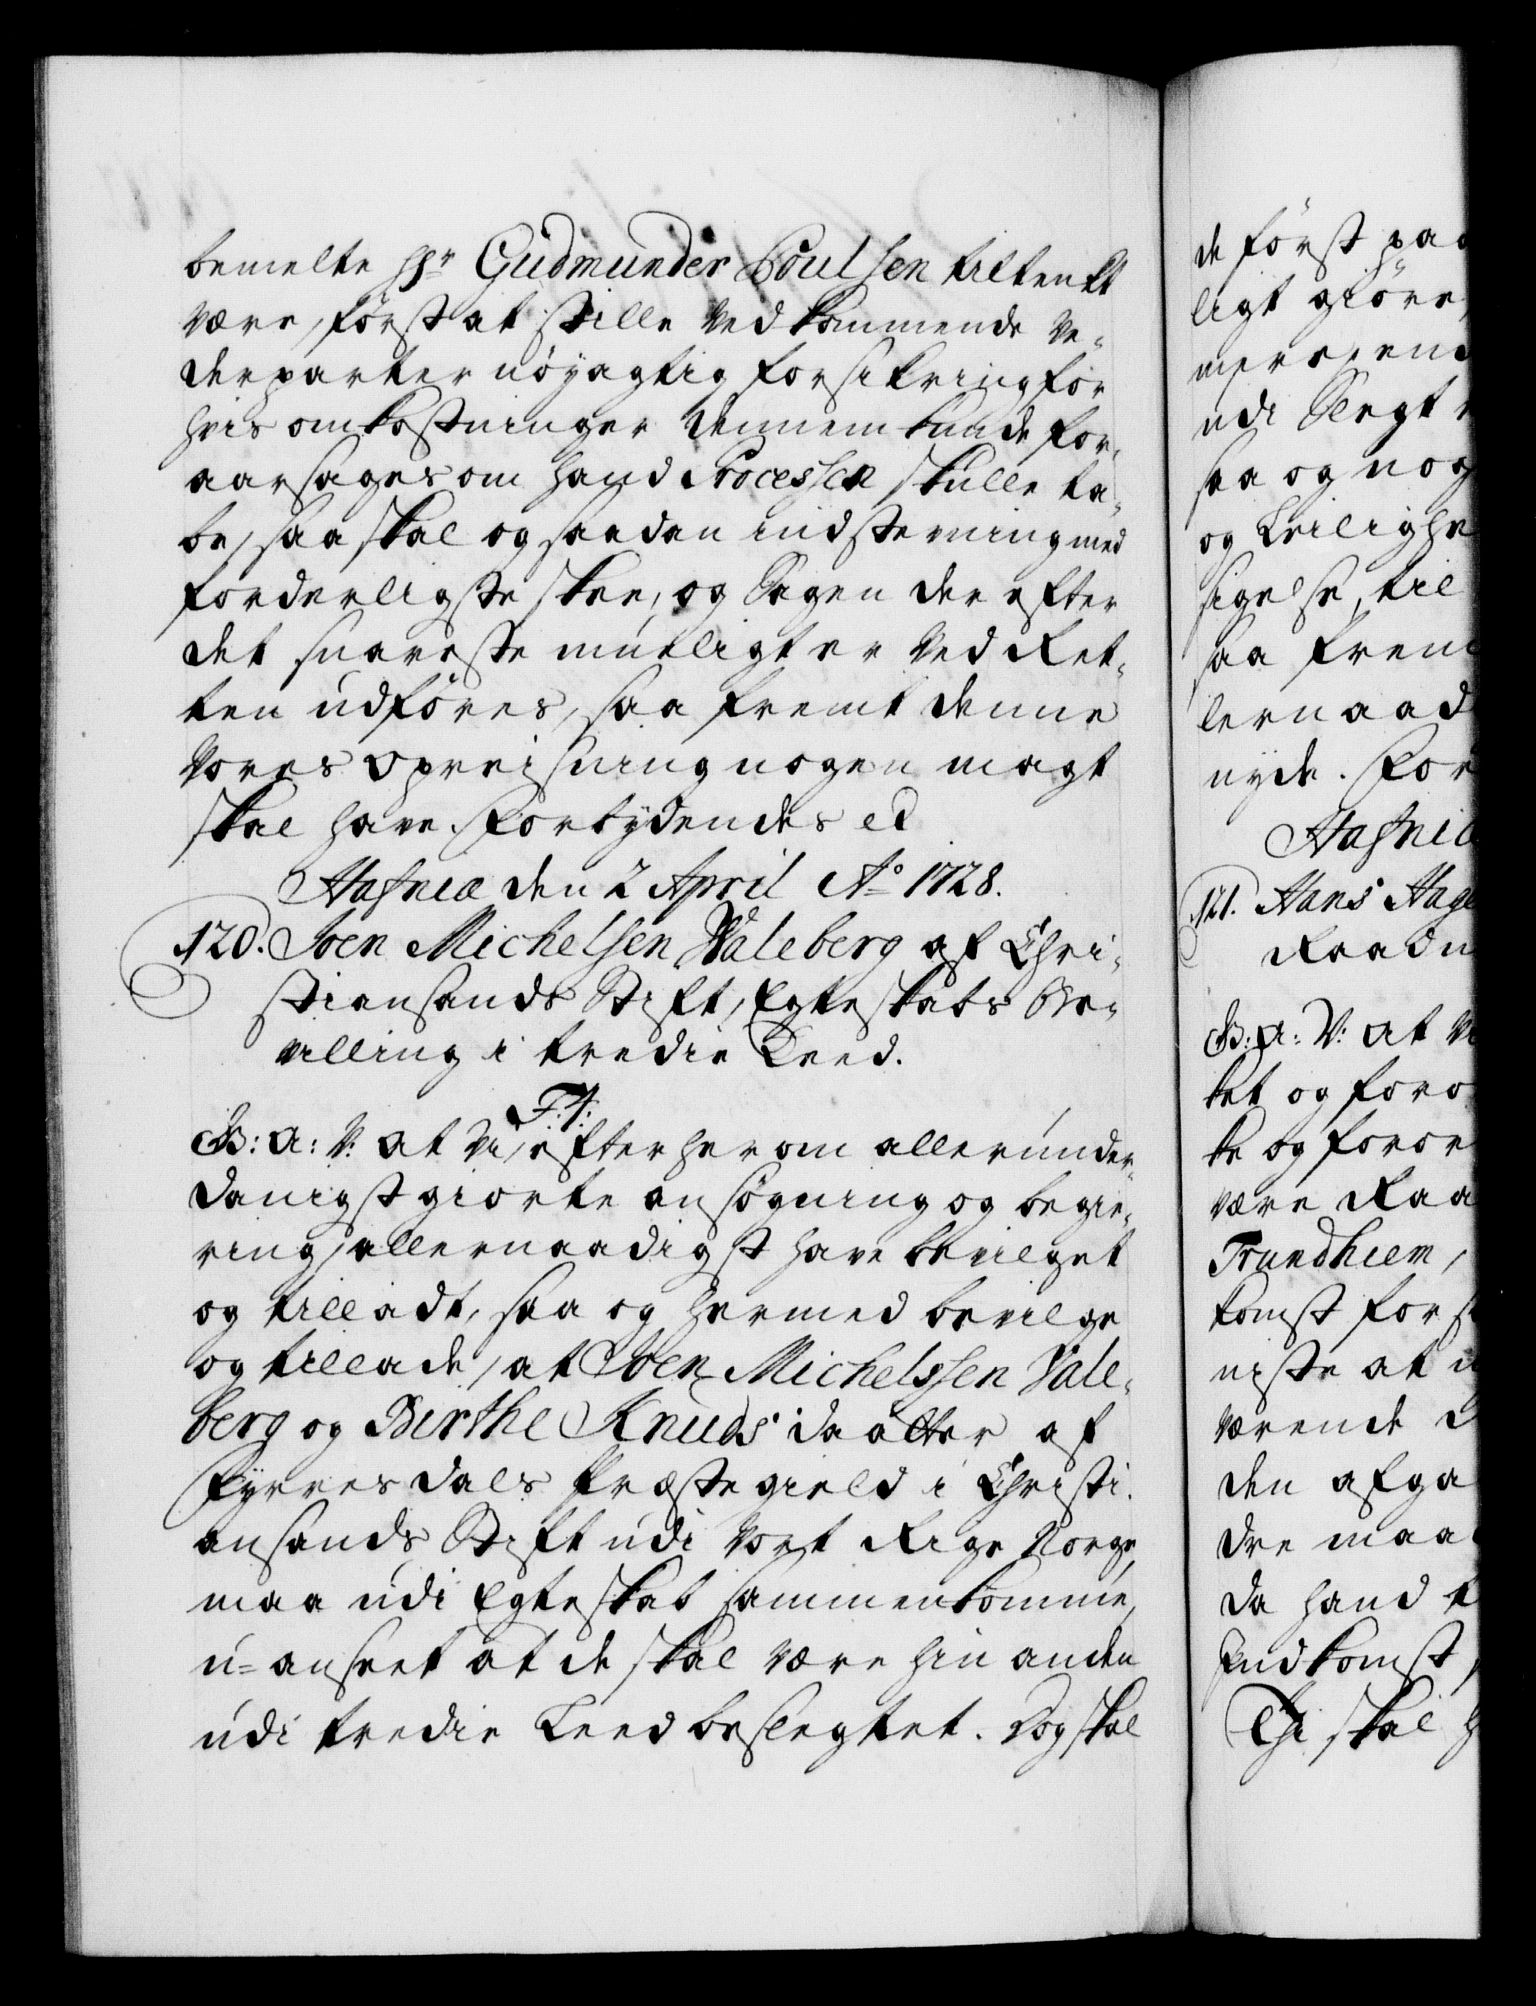 bemelte Hr. Gudmunder Poulsen tiltenkt
være, först at stille vedkommende ve-
derparter nöyagtig forsikring for
hvis omkostninger dennem kunde for-
aarsages om hand Processen skulle ta-
be, saa skal og saadan indstevning med
forderligste skee, og Sagen der efter
det snareste mueligt er ved Ret-
ten udföres, saa fremt denne
Vores opreisning nogen magt
skal have. Forbydendes etc
Hafniæ den 2 April Ao 1728.
120. Joen Michelsen Valeberg af Chri-
stiansands Stift, Egteskabs Be-
villing i tredie Leed.
F. 4.
G: A: V: at Vi, efter herom allerunder-
danigst giorte ansögning og begie-
ring, allernaadigst have bevilget
og tilladt, saa og hermed bevilge
og tillade, at Joen Michelssen Vale-
berg og Birthe Knuds daatter af
Fyrresdals Præstegield i Christi-
ansands Stift udi Vort Rige Norge,
maa udi Egteskab sammenkomme,
u-anseet at de skal være hin anden
udi tredie Leed beslegtet. Dog skal
de först paa
ligt giöre,
mere, end
udi Slegt
saa og nog
og Leilighe
sigelse, til
saa frem
lernaad
nyde. For
Hafniæ
121. Hans Hage
Raadm
G: A: V: at Vi
tet og foro
te og foror
være Raa
Trundhiem,
komst for s
niste at
værende
den afga
dre maa
da hand
Indkomst,
Thi skal h